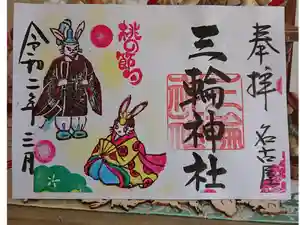 奉拝
名古屋
三輪神社
桃の節句
令和二年三月